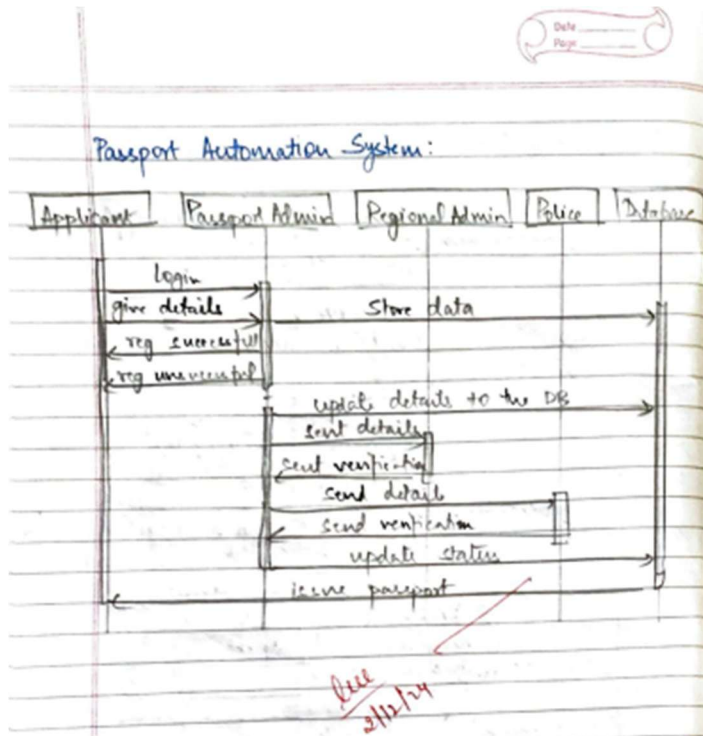 Date
Page
Passport Automation System:
Applicant Passport Admin Regional Admin Police Database
login
give details store data
reg successful
reg unsuccessful
update details to the DB
sent details
sent verification
send details
send verification
update status
issue passport
2/12/24